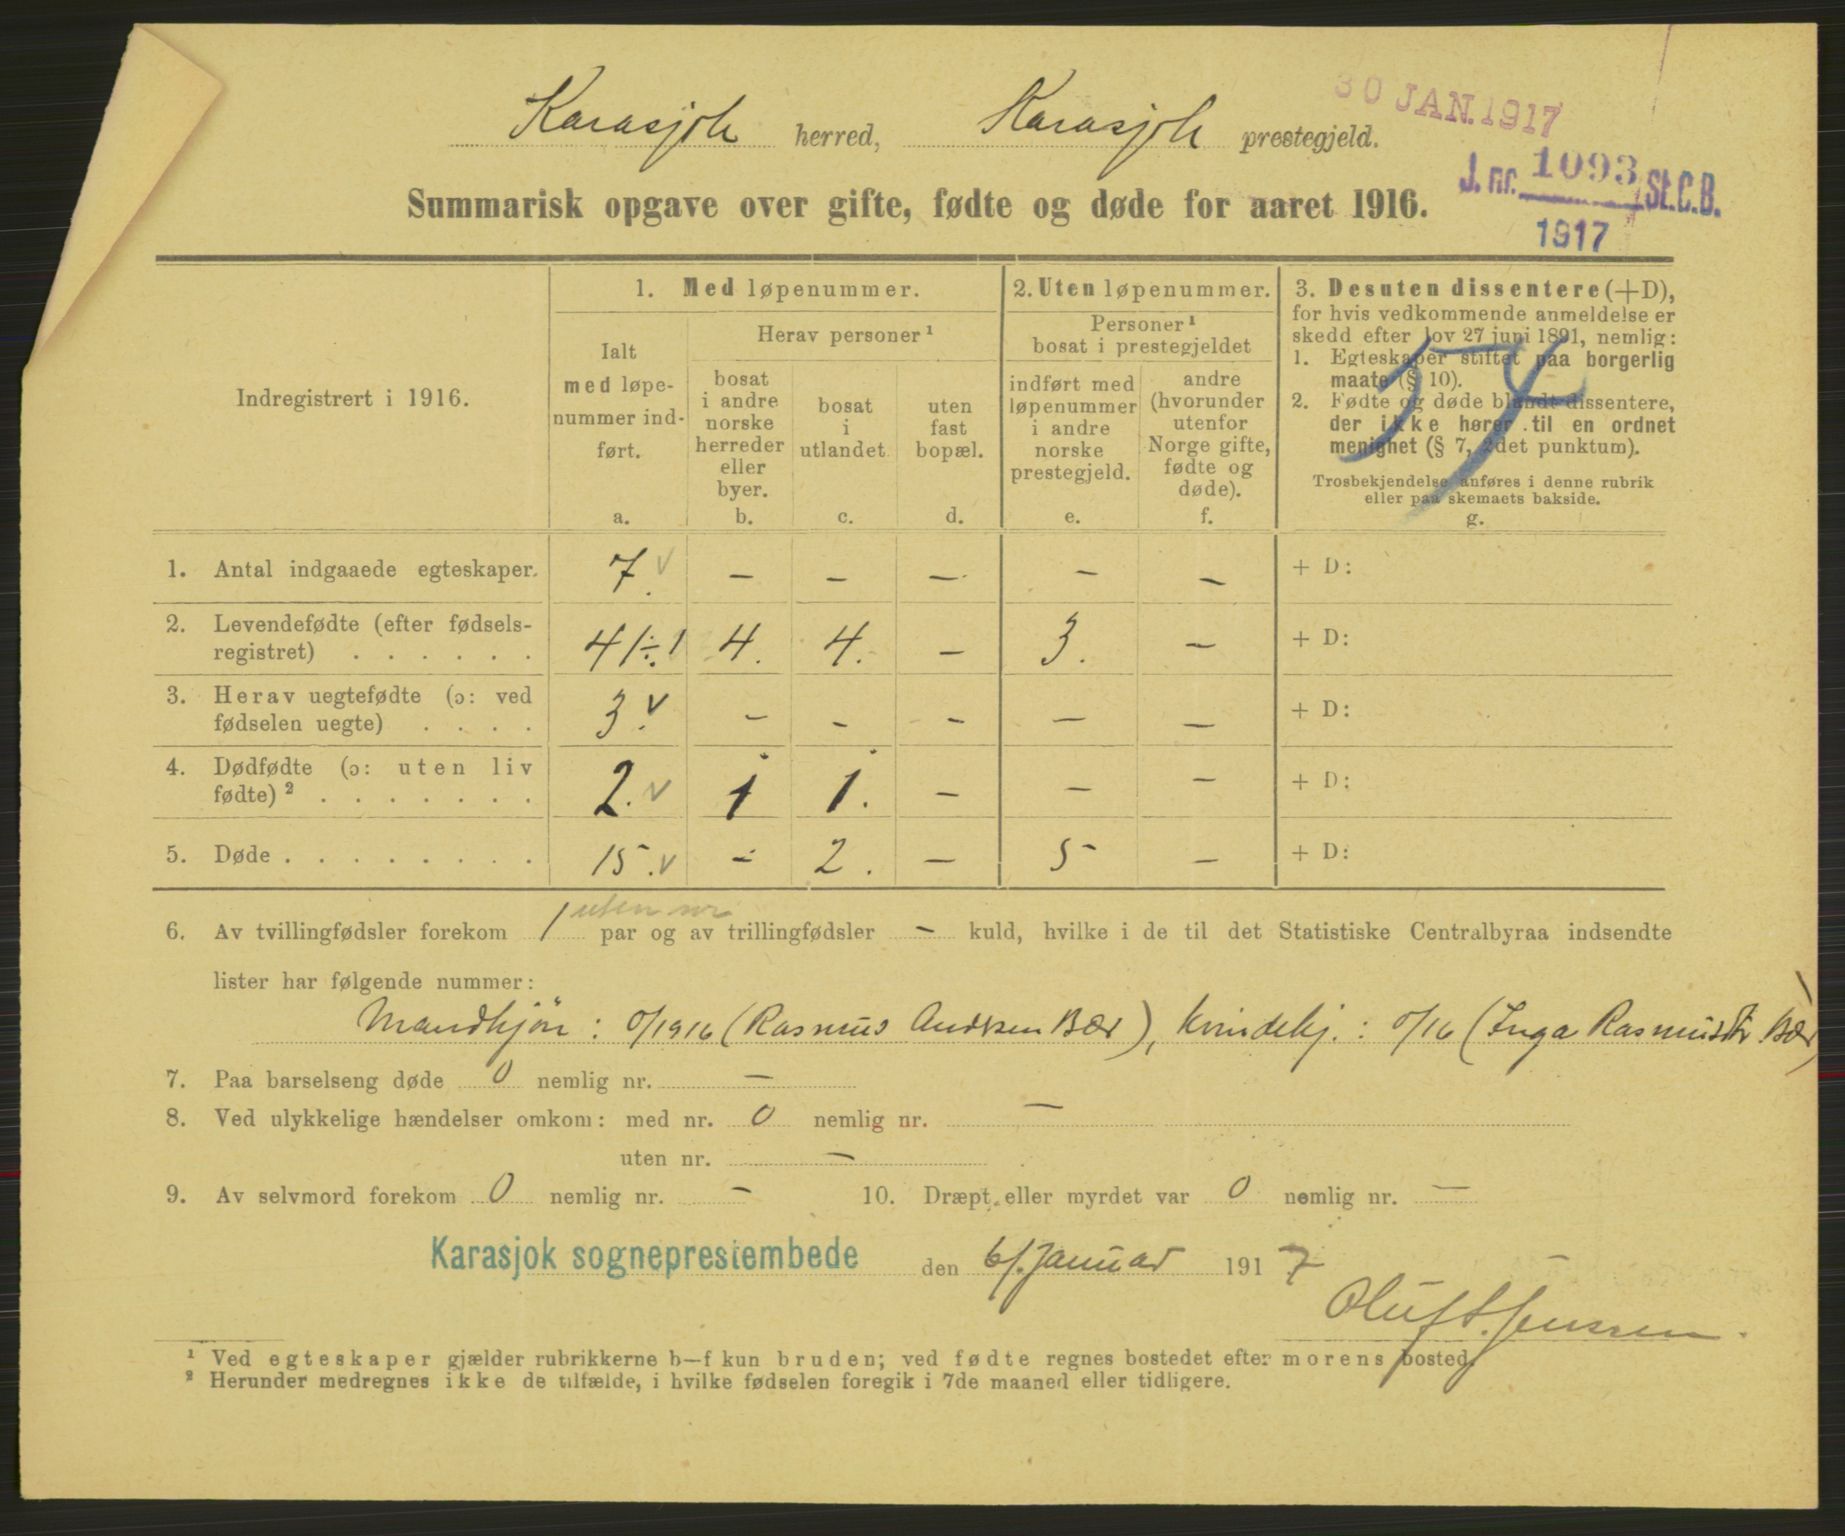 30 JAN. 1917
Karasjok herred, Karasjok prestegjeld.
J. nr. 1093 St.C.B.
1917
Summarisk opgave over gifte, fødte og døde for aaret 1916.
Indregistrert i 1916.
1. Med løpenummer.
Ialt
med løpe-
nummer ind-
ført.
a.
Herav personer ¹
bosat
i andre
norske
herreder
eller
byer.
b.
bosat
i
utlandet
c.
uten
fast
bopæl.
d.
2. Uten løpenummer.
Personer ¹
bosat i prestegjeldet
indført med
løpenummer
i andre
norske
prestegjeld.
e.
andre
(hvorunder
utenfor
Norge gifte,
fødte og
døde).
f.
3. Desuten dissentere (+D),
for hvis vedkommende anmeldelse er
skedd efter lov 27 juni 1891, nemlig:
1. Egteskaper stiftet paa borgerlig
maate (§ 10).
2. Fødte og døde blandt dissentere,
der ikke hører til en ordnet
menighet (§ 7, 2det punktum).
Trosbekjendelse anføres i denne rubrik
eller paa skemaets bakside.
g.
1. Antal indgaaede egteskaper. 7. v – – – – – + D:
2. Levendefødte (efter fødsels-
registret) . . . . . . 41 ÷ 1 4. 4. – 3. – + D:
3. Herav uegtefødte (ɔ: ved
fødselen uegte) . . . . 3. v – – – – – + D:
4. Dødfødte (ɔ: uten liv
fødte) ² . . . . . . . 2. v 1 1. – – – + D:
5. Døde . . . . . . . . 15. v – 2. – 5 – + D:
uten nr
6. Av tvillingfødsler forekom 1 par og av trillingfødsler – kuld, hvilke i de til det Statistiske Centralbyraa indsendte
lister har følgende nummer:
Mandkjøn: 0/1916 (Rasmus Andersen Bær), Kvindekj.: 0/16 (Inga Rasmusdtr. Bær)
7. Paa barselseng døde 0 nemlig nr. –
8. Ved ulykkelige hændelser omkom: med nr. 0 nemlig nr. –
uten nr. –
9. Av selvmord forekom 0 nemlig nr. – 10. Dræpt eller myrdet var 0 nemlig nr. –
Karasjok sogneprestembede den 6/. Januar 1917
Oluf A. Jenssen.
¹ Ved egteskaper gjælder rubrikkerne b—f kun bruden; ved fødte regnes bostedet efter morens bosted.
² Herunder medregnes ikke de tilfælde, i hvilke fødselen foregik i 7de maaned eller tidligere.